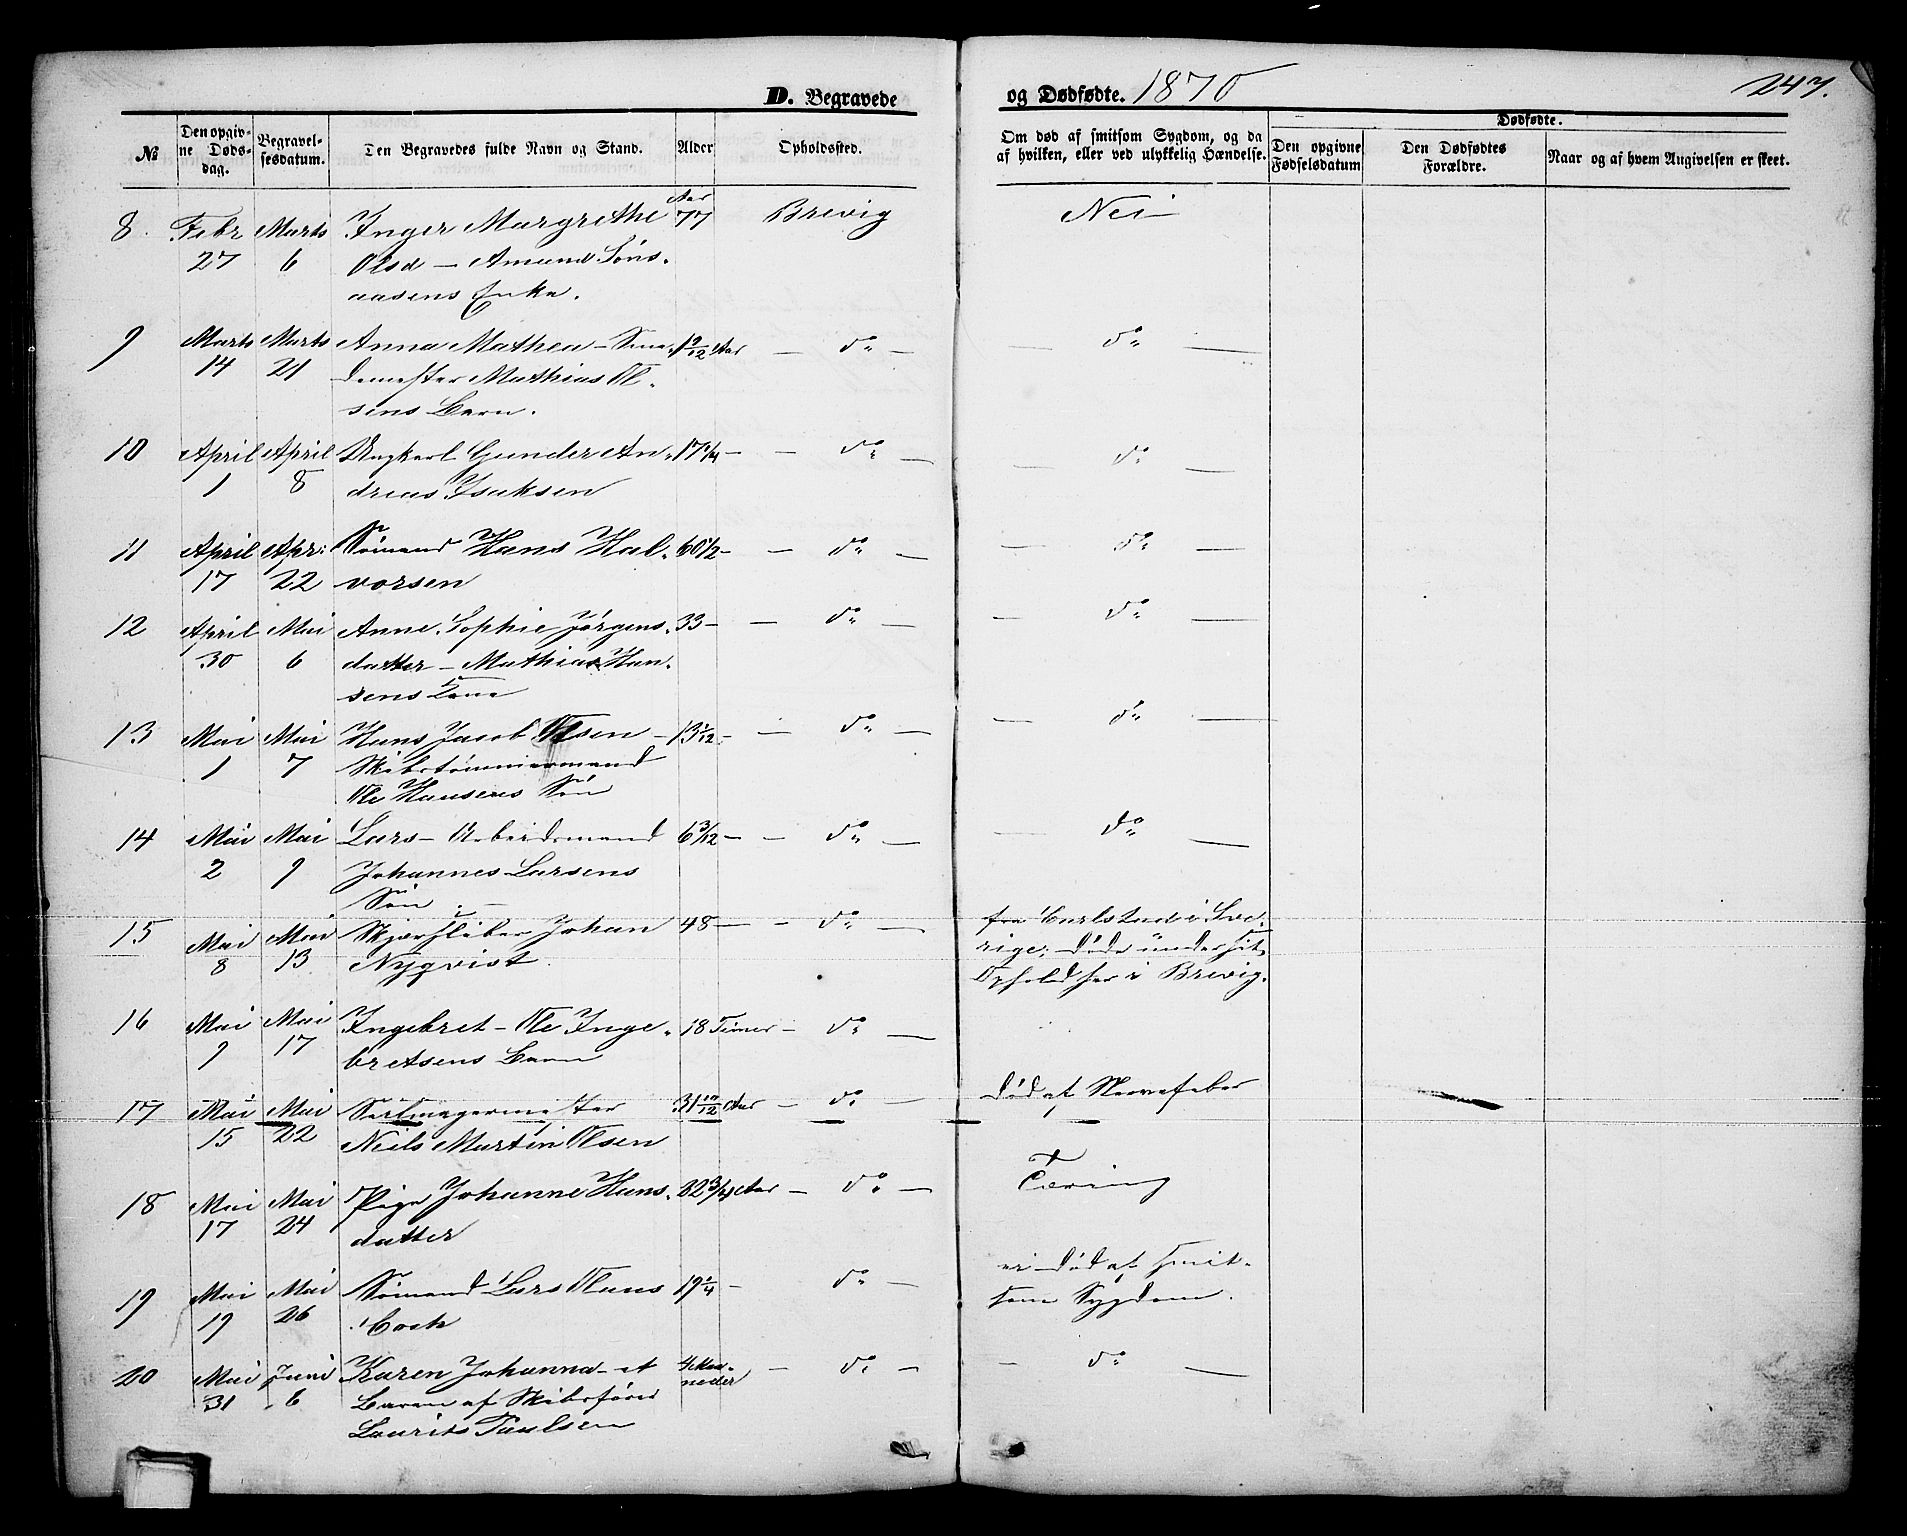 D. Begravede og Dødfødte. 1870 247.
№ Den opgivne Dødsdag. Begravelsesdatum. Den Begravedes fulde Navn og Stand. Alder Opholdssted. Om død af smitsom Sygdom, og da af hvilken, eller ved ulykkelig Hændelse. Dødfødte. Den opgivne Fødselsdatum Den Dødfødtes Forældre. Naar og af hvem Angivelsen er skeet.
8. Febr Marts Inger Margrethe Aar 77 Brevig Nei
27 6 Olsd – Amund Søns-
aasens Enke.
9 Marts Marts Anna Mathea – Sme- 1 9/12 Aar – do – – do –
14 21 demester Mathias Ol-
sens Barn.
10 April April Ungkarl Gunder An- 17 1/4 – – do – – do –
1 8 dreas Isaksen
11 April Apr: Sømand Hans Hal- 60 1/2 – – do – – do –
17 22 vorsen
12 April Mai Anne Sophie Jørgens- 33 – – do – – do –
30 6 datter – Mathias Han-
sens Kone
13 Mai Mai Hans Jacob Olsen – 13 1/12 – do – – do –
1 7 Skibstømmermand
Ole Hansens Søn
14 Mai Mai Lars – Arbeidsmand 6 3/12 – – do – – do –
2 9 Johannes Larsens
Søn. –
15 Mai Mai Skjærsliber Johan 48 – – do – fra Carlstad i Sve-
8 13 Nyqvist. rige; døde under sit
Ophold her i Brevig.
16 Mai Mai Ingebret – Ole Inge- 18 Timer – do –
9 17 bretsens Barn
17 Mai Mai Seilmagermester 31 10/12 Aar – do – død af Nervefeber
15 22 Niels Martin Olsen
18 Mai Mai Pige Johanne Hans- 22 3/4 Aar – do – Tæring
17 24 datter
19 Mai Mai Sømand Lars Olaus 19 1/4 – do – ei død af smit-
19 26 Coch som Sygdom.
20 Mai Juni Karen Johanna – et 4 Maa- – do – – do –
31 6 Barn af Skibsfører neder
Laurits Paulsen